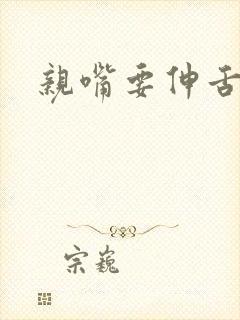 親嘴要伸舌
宗巍